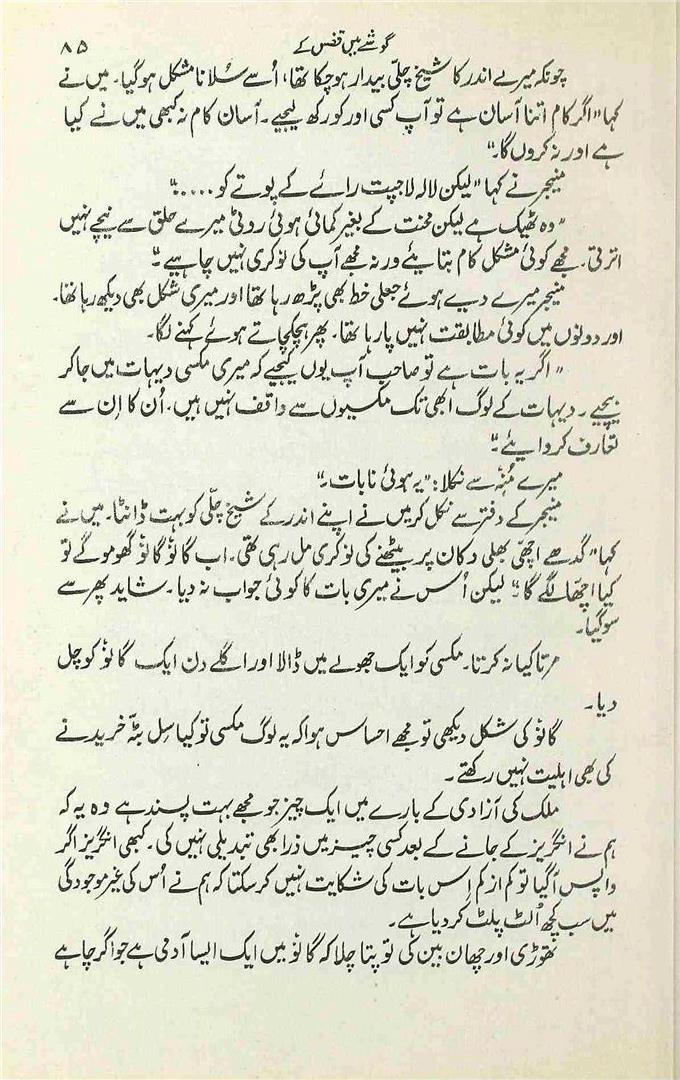 گوشے میں قفس کے
۸۵
چونکہ میرے اندر کا شیخ چلّی بیدار ہو چکا تھا، اُسے سُلانا مشکل ہو گیا۔ میں نے
کہا "اگر کام اتنا آسان ہے تو آپ کسی اور کو رکھ لیجیے۔ آسان کام نہ کبھی میں نے کیا
ہے اور نہ کروں گا۔"
منیجر نے کہا "لیکن لالہ لاجپت رائے کے پوتے کو ....."
"وہ ٹھیک ہے لیکن محنت کے بغیر کمائی ہوئی روٹی میرے حلق سے نیچے نہیں
اترتی۔ مجھے کوئی مشکل کام بتائیے ورنہ مجھے آپ کی نوکری نہیں چاہیے۔"
منیجر میرے دیے ہوئے جعلی خط بھی پڑھ رہا تھا اور میری شکل بھی دیکھ رہا تھا۔
اور دونوں میں کوئی مطابقت نہیں پا رہا تھا۔ پھر ہچکچاتے ہوئے کہنے لگا۔
"اگر یہ بات ہے تو صاحب آپ یوں کیجیے کہ میری مکسی دیہات میں جا کر
بیچیے۔ دیہات کے لوگ ابھی تک مکسیوں سے واقف نہیں ہیں۔ اُن کا اِن سے
تعارف کروائیے۔"
میرے مُنہ سے نکلا: "یہ ہوئی نا بات۔"
منیجر کے دفتر سے نکل کر میں نے اپنے اندر کے شیخ چلّی کو بہت ڈانٹا۔ میں نے
کہا "گدھے اچھی بھلی دکان پر بیٹھنے کی نوکری مل رہی تھی۔ اب گانؤ گانؤ گھومو گے تو
کیا اچھا لگے گا۔" لیکن اُس نے میری بات کا کوئی جواب نہ دیا۔ شاید پھر سے
سو گیا۔
مرتا کیا نہ کرتا۔ مکسی کو ایک جھولے میں ڈالا اور اگلے دن ایک گانؤ کو چل
دیا۔
گانؤ کی شکل دیکھی تو مجھے احساس ہوا کہ یہ لوگ مکسی تو کیا سِل بٹّہ خریدنے
کی بھی اہلیت نہیں رکھتے۔
ملک کی آزادی کے بارے میں ایک چیز جو مجھے بہت پسند ہے وہ یہ کہ
ہم نے انگریز کے جانے کے بعد کسی چیز میں ذرا بھی تبدیلی نہیں کی۔ کبھی انگریز اگر
واپس آ گیا تو کم از کم اِس بات کی شکایت نہیں کر سکتا کہ ہم نے اُس کی غیر موجودگی
میں سب کچھ اُلٹ پلٹ کر دیا ہے۔
تھوڑی اور چھان بین کی تو پتا چلا کہ گانؤ میں ایک ایسا آدمی ہے جو اگر چاہے